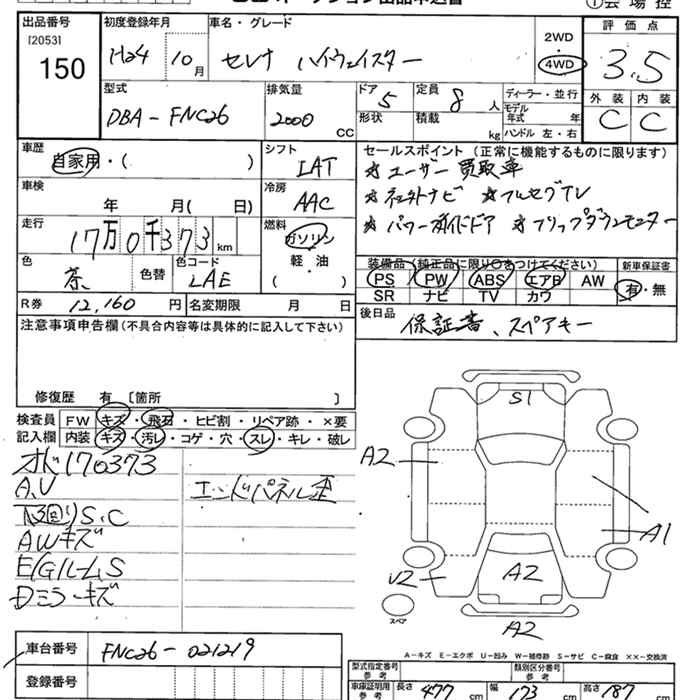 ①会場控
出品番号 初度登録年月 車名・グレード 評価点
[2053] 150
H24 10月 セレナ ハイウェイスター 2WD 4WD 3.5
型式 排気量 ドア 5 定員 8人 ディーラー・並行 外装 内装
DBA-FNC26 2000 CC 形状 積載 kg モデル年式 年 ハンドル 左・右 C C
車歴 自家用・( ) シフト LAT セールスポイント (正常に機能するものに限ります)
☆ユーザー買取車
車検 年 月( 日) 冷房 AAC
☆フルセグTV
走行 17万0千373km 燃料 ガソリン 軽・油
☆パワースライドドア ☆フリップダウンモニター
色 茶 色替 色コード LAE
装備品 (純正品に限り○をつけてください) 新車保証書
PS PW ABS エアB AW 有・無
SR ナビ TV カワ
R券 12,160円 名変期限 月 日
後日品 保証書、スペアキー
注意事項申告欄 (不具合内容等は具体的に記入して下さい)
修復歴 有 [箇所 ]
検査員 FW キズ・飛石・ヒビ割・リペア跡・×要
記入欄 内装 キズ・汚レ・コゲ・穴・スレ・キレ・破レ
オド170373
A,V エンドパネル歪
S.C
AWキズ
E/Gルーム S
Dミラーキズ
S1
A2
A1
A2
U2
A2
スペア
A-キズ E-エクボ U-凹み W-補修跡 S-サビ C-腐食 ××-交換済
車台番号 FNC26-021219
登録番号
型式指定番号 参考 類別区分番号 参考
車庫証明用 参考 長さ 477cm 幅 173cm 高さ 187cm